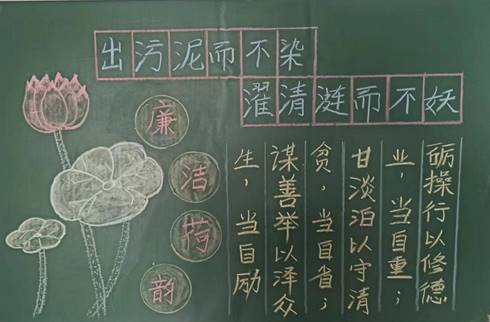 出污泥而不染
濯清涟而不妖
廉
洁
荷
韵
砺操行以修德
业，当自重；
甘淡泊以守清
贫，当自省；
谋善举以泽众
生，当自励